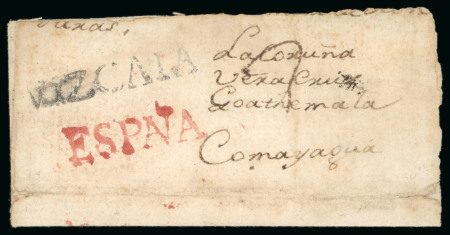 VIZCAIA
ESPÑA
La Coruña
Vera Cruz
Goathemala
Comayagua